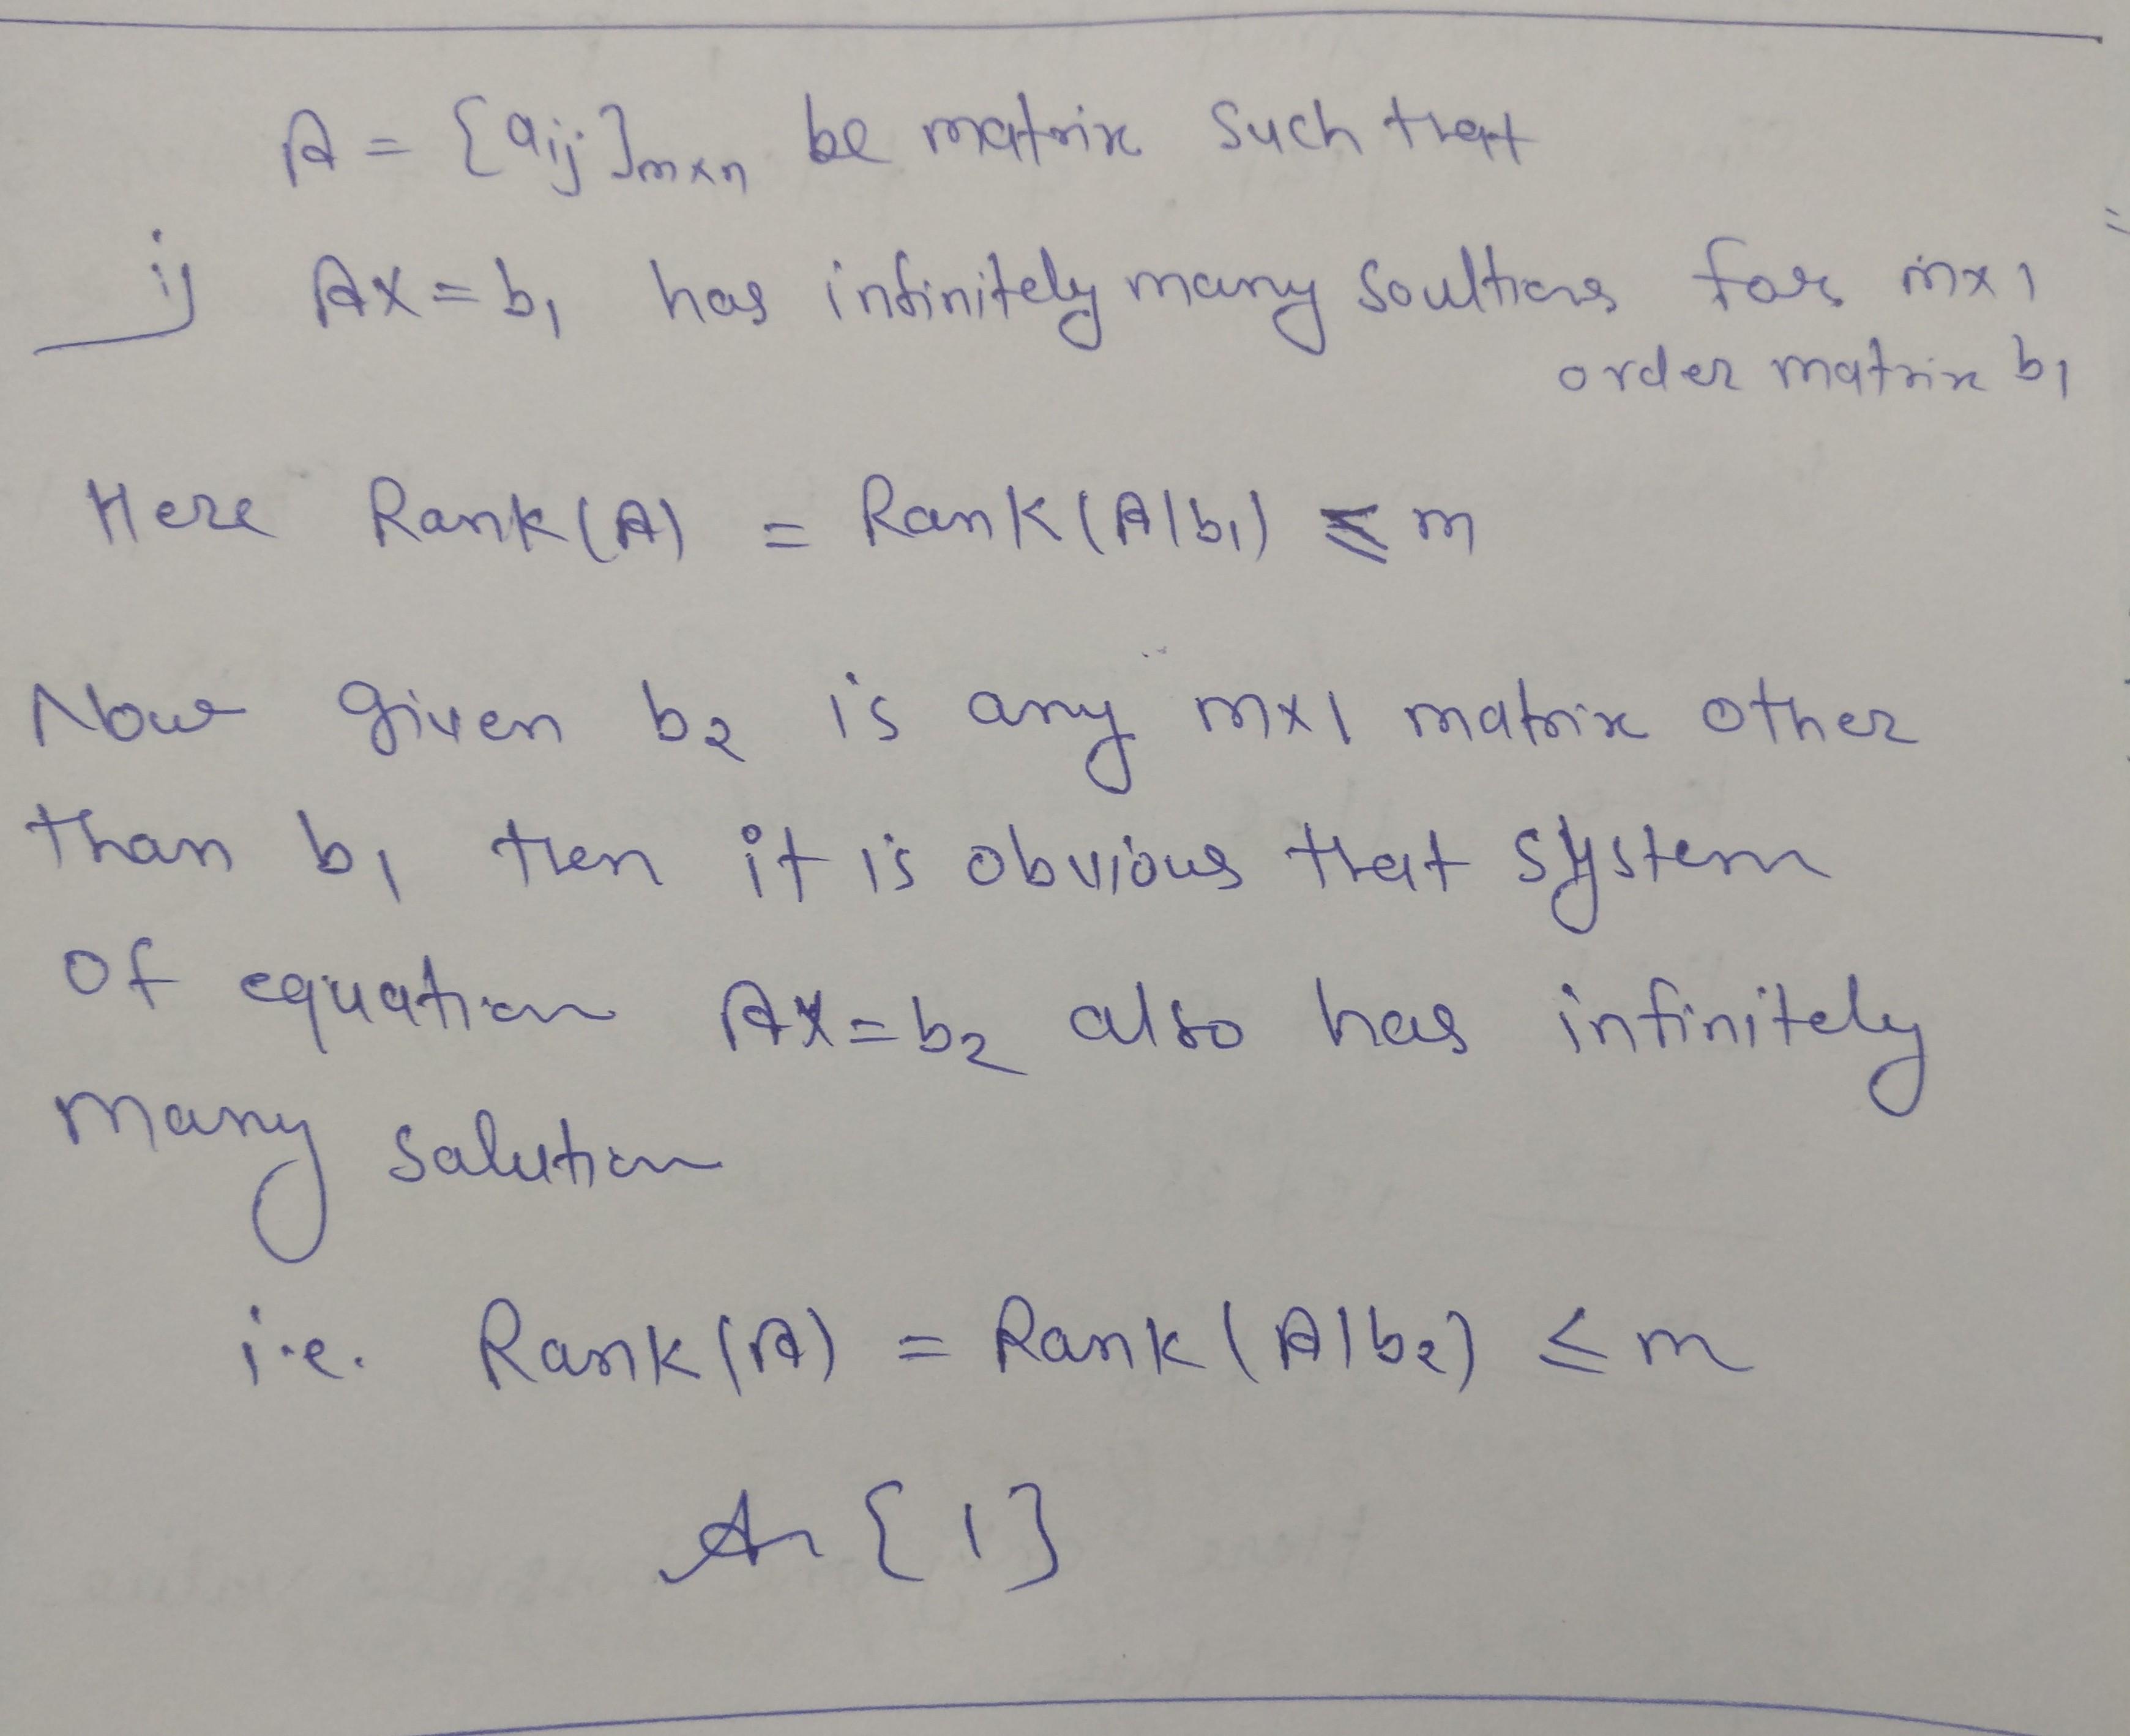 A = {aij}mxn be matrix such that
i) AX = b1 has infinitely many soultions for mx1
order matrix b1
Here Rank(A) = Rank(A|b1) ≤ m
Now given b2 is any mx1 matrix other
than b1 then it is obvious that system
of equation AX = b2 also has infinitely
many solution
i.e. Rank(A) = Rank(A|b2) ≤ m
{1}